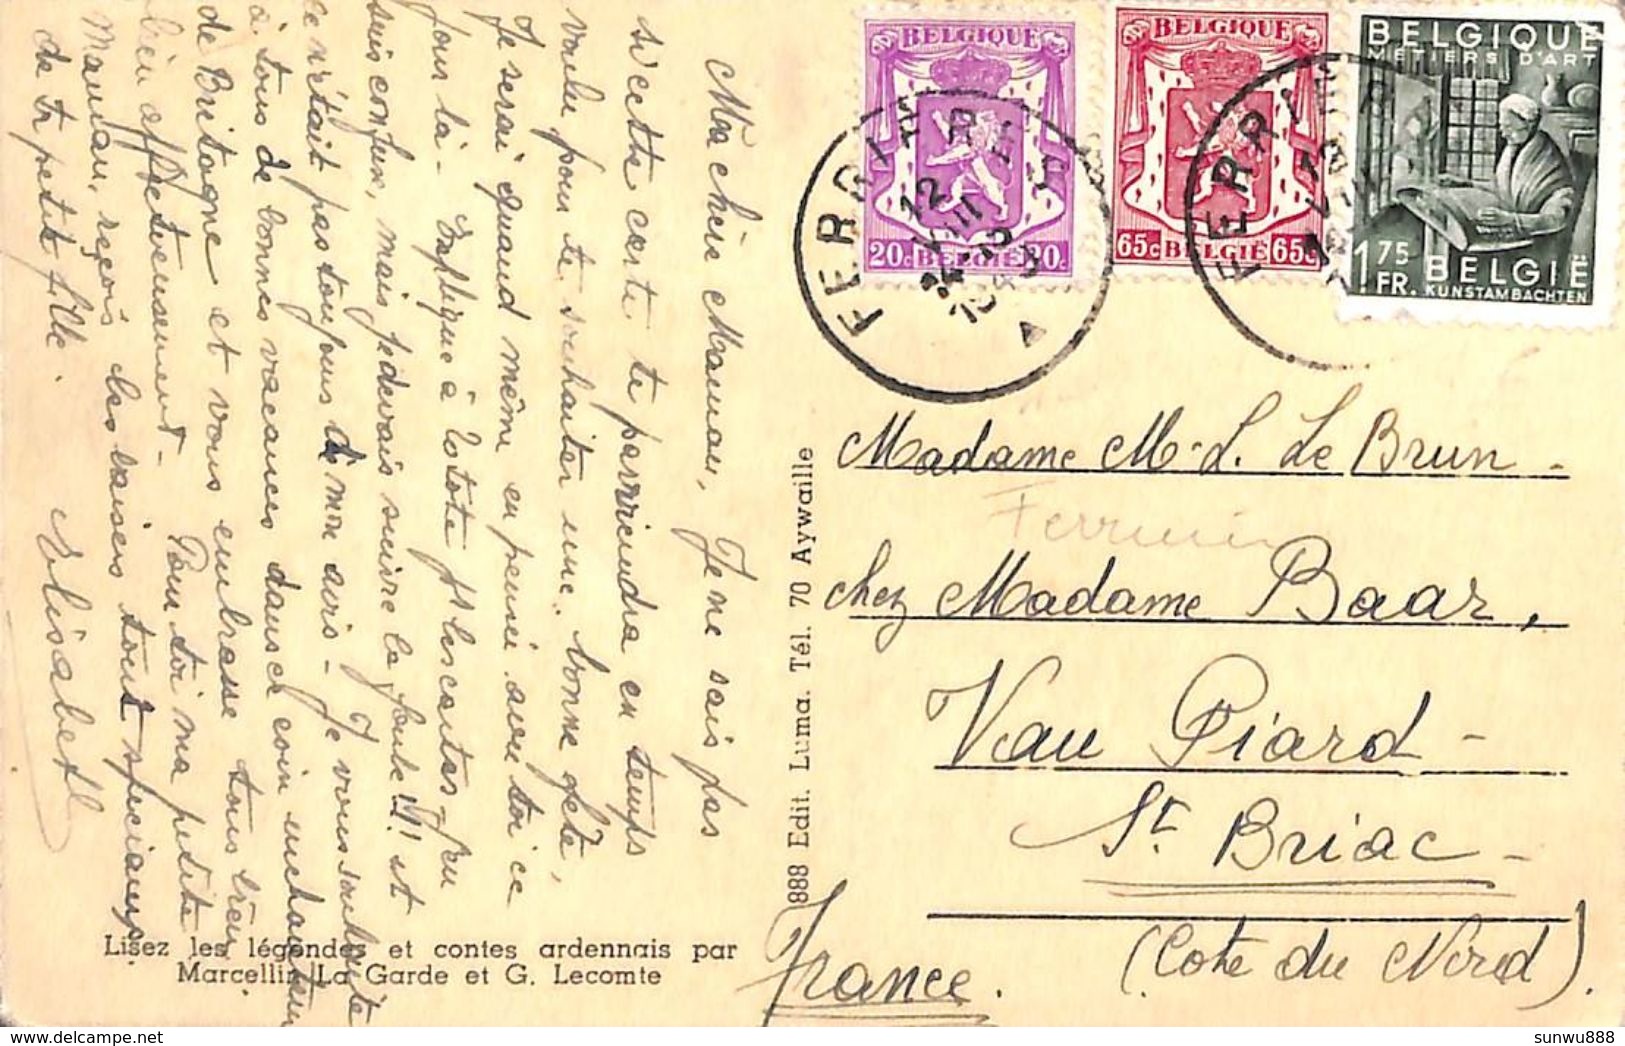 Ma chère Maman, Je ne sais pas
si cette carte te parviendra en temps
voulu pour te souhaiter une bonne fête,
Je serai quand même en pensée avec toi ce
jour là - Explique à Totote pr les cartes, je
suis confuse, mais je devais suivre la foule !!! et
ce n'était pas toujours de mon avis - Je vous souhaite
à tous de bonnes vacances dans ce coin enchanteur
de Bretagne et vous embrasse tous bien
bien affectueusement - Pour toi ma petite
Maman, reçois les baisers tout spéciaux
de ta petite fille.
Elisabeth
Lisez les légendes et contes ardennais par
Marcellin La Garde et G. Lecomte
888 Edit. Luma. Tél. 70 Aywaille
BELGIQUE
20c BELGIË 20c
BELGIQUE
65c BELGIË 65c
BELGIQUE
METIERS D'ART
1,75 FR. BELGIË
KUNSTAMBACHTEN
FERRIERES
12 VIII
FERRIER
Madame M-L. Le Brun -
chez Madame Baar,
Van Piard -
St Briac -
(Cote du Nord).
France.
sunwu888